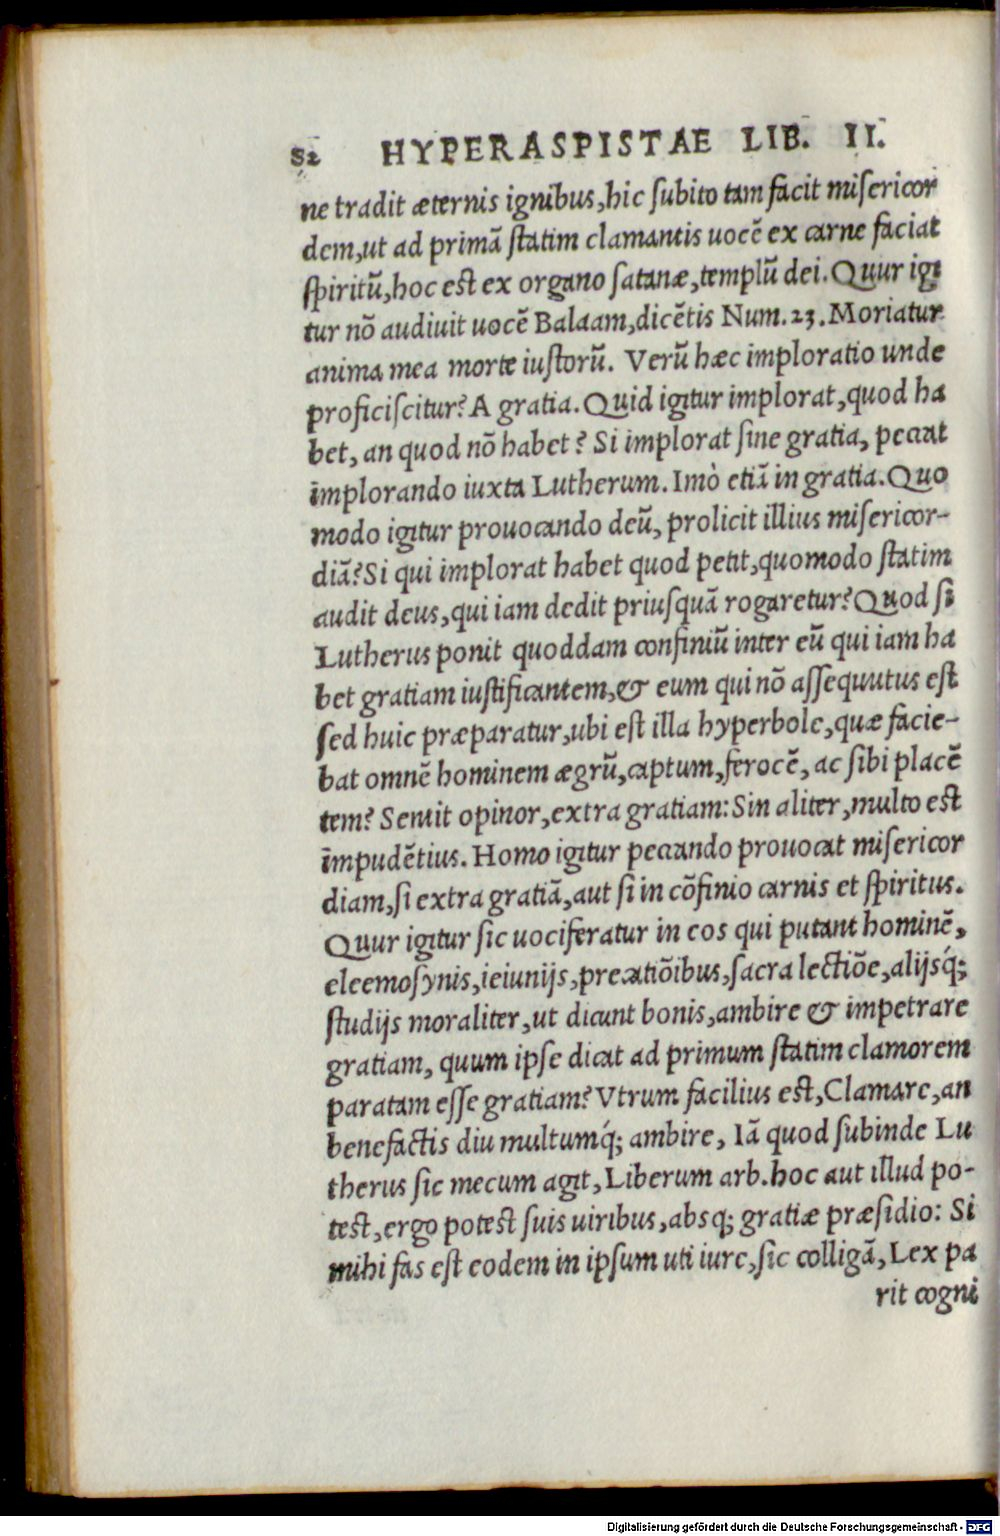 82 HYPERASPISTAE LIB. II.
ne tradit æternis ignibus,hic ſubito tam facit miſericor
dem,ut ad primã ſtatim clamantis uocẽ ex carne faciat
ſpiritũ,hoc est ex organo ſatanæ,templũ dei. Quur igi
tur nõ audiuit uocẽ Balaam,dicẽtis Num.23.Moriatur
anima mea morte iuſtorũ. Verũ hæc imploratio unde
proficiſcitur? A gratia. Quid igitur implorat,quod ha
bet, an quod nõ habet? Si implorat ſine gratia, peccat
implorando iuxta Lutherum. Imò etiã in gratia. Quo
modo igitur prouocando deũ, prolicit illius miſericor-
diã? Si qui implorat habet quod petit,quomodo ſtatim
audit deus,qui iam dedit priuſquã rogaretur? Quod ſi
Lutherus ponit quoddam confiniũ inter eũ qui iam ha
bet gratiam iuſtificantem,& eum qui nõ aſſequutus eſt
ſed huic præparatur,ubi eſt illa hyperbole,quæ facie-
bat omnẽ hominem ægrũ,captum,ferocẽ, ac ſibi placẽ
tem? Sentit opinor,extra gratiam: Sin aliter,multo eſt
impudẽtius. Homo igitur peccando prouocat miſericor
diam,ſi extra gratiã,aut ſi in cõfinio carnis et ſpiritus.
Quur igitur ſic uociferatur in eos qui putant hominẽ,
eleemoſynis,ieiunijs,precatiõibus,ſacra lectiõe,alijsq́;
ſtudijs moraliter,ut dicunt bonis,ambire & impetrare
gratiam, quum ipſe dicat ad primum ſtatim clamorem
paratam eſſe gratiam? Vtrum facilius eſt,Clamare,an
benefactis diu multumq́; ambire, Iã quod ſubinde Lu
therus ſic mecum agit,Liberum arb.hoc aut illud po-
teſt,ergo poteſt ſuis uiribus,absq; gratiæ præſidio: Si
mihi fas eſt eodem in ipſum uti iure,ſic colligã, Lex pa
rit cogni
Digitalisierung gefördert durch die Deutsche Forschungsgemeinschaft - DFG